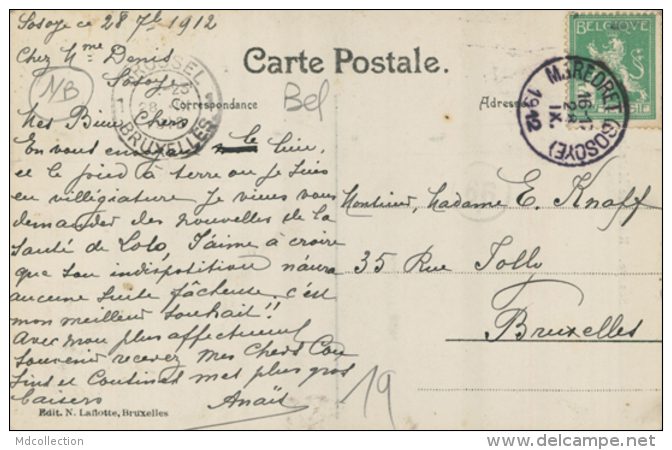 Sosoye ce 28 7b 1912
Chez Mme Denis
Sosoye
NB
BRUSSEL
BRUXELLES
Carte Postale.
Correspondance
Bel
Adresse
BELGIQUE
MAREDRET (SOSOYE)
16-1
IX.
1912
Mes Bien Chers
En vous envoyant le lieu,
et le pied à terre où je suis
en villégiature Je viens vous
demander des nouvelles de la
santé de Lolo J'aime à croire
que son indisposition n'aura
aucune suite fâcheuse, c'est
mon meilleur souhait!!
Avec mon plus affectueux
souvenir recevez mes chers Cou
sins et Cousines mes plus gros
baisers Anaïs
Monsieur, Madame E. Knaff
35 Rue Jolly
Bruxelles
19
Edit. N. Laflotte, Bruxelles
Mdcollection
www.delcampe.net